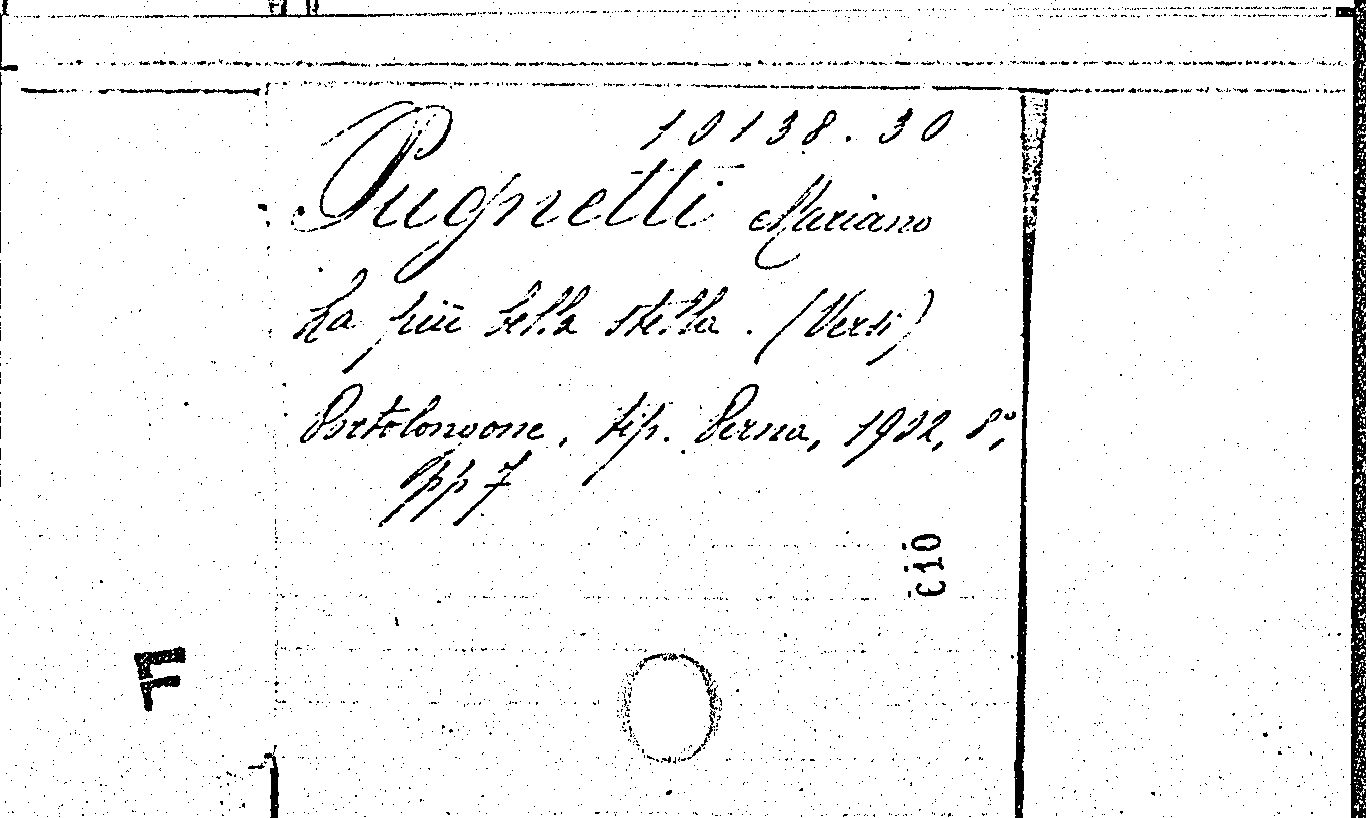 10138.30
Pugnetti Mariano
La più bella stella. (Versi)
Portolongone, tip. Perna, 1902, 8°,
pp 7
C10
F